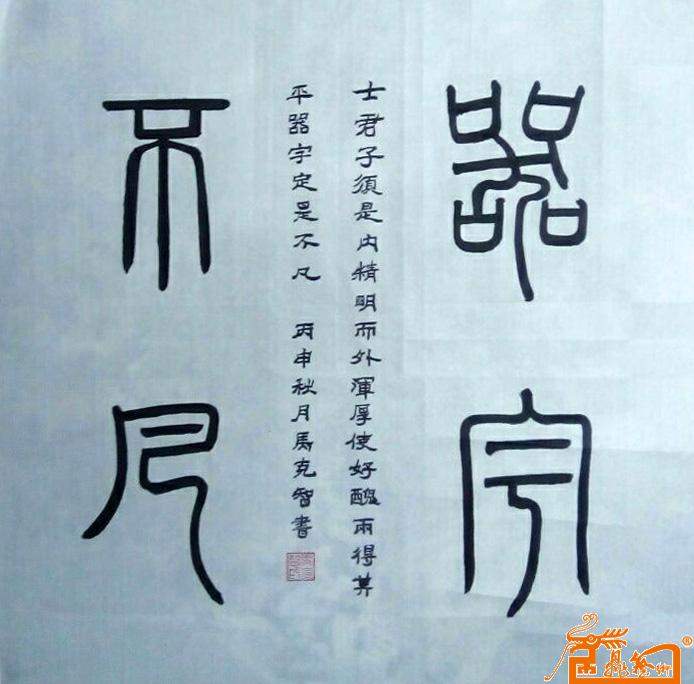 器宇
士君子須是内精明而外渾厚使好醜兩得其
平器宇定是不凡 丙申秋月馬克智書
不凡